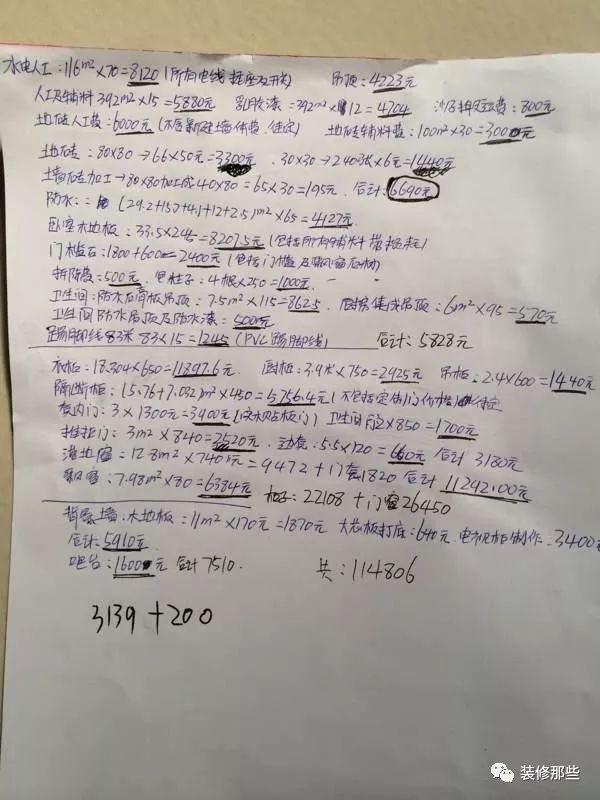 水电人工:116m²×70=8120(所有电线插座及开关) 吊顶:4223元
人工及辅料392m²×15=5880元 乳胶漆:392m²×12=4704 沙及搬运费:800元
地砖人工费:6000元(不含新建墙体费 待定) 地砖辅料费:100m²×30=3000元
地砖:80×80→66×50元=3300元 30×30→240张×6元=1440元
墙砖加工→80×80加工成40×80=65×30=195元 合计:6690元
防水: (29.2+15.)+4.1+12+2.5)m²×65=4127元
卧室木地板:33.5×245=8207.5元(包括所有辅料
门槛石:1800+600=2400元(包括门槛及飘窗石材)
拆除费:500元 包柱子:4根×250=1000元
卫生间:防水石膏板吊顶:7.5m²×115=862.5 厨房集成吊顶:6m²×95=570元
卫生间防水吊顶及防水漆:500元
踢脚线83米 83×15=1245(PVC踢脚线) 合计:5828元
衣柜:18.304×650=11897.6元 厨柜:3.9米×750=2925元 吊柜:2.4×600=1440元
隔断柜:(5.76+7.032)m²×450=5756.4元(不包括定制门
室内门:3×1300元=3900元 卫生间门2×850=1700元
推拉门:3m²×840=2520元 边套:5.5×120=660元 合计3180元
落地窗:12.8m²×740元=9472+门套1820 合计11292.00元
飘窗:7.98m²×80=6384元 柜子:22108+门窗26450
背景墙:木地板:11m²×170元=1870元 大芯板打底:640元 电视柜制作:3400元
合计:5910元
吧台:1600元 合计7510. 共:114806
3139+200
装修那些